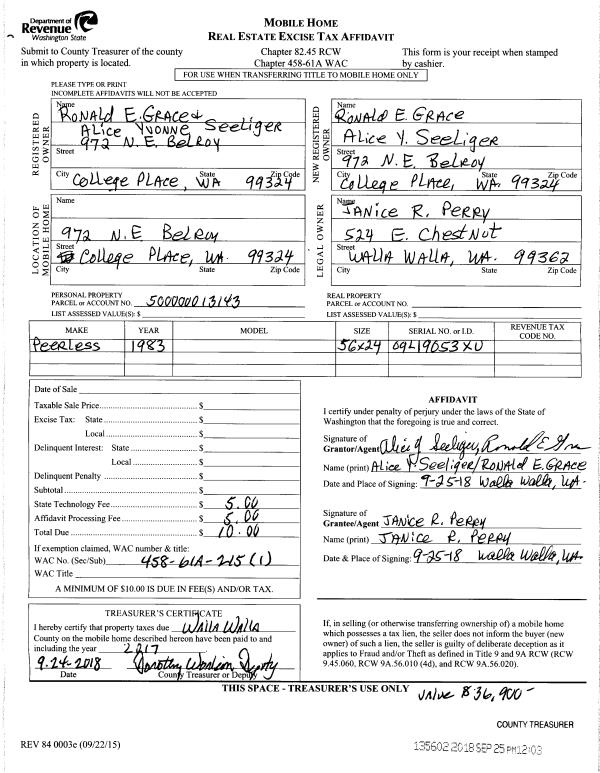 Department of
Revenue
Washington State
MOBILE HOME
REAL ESTATE EXCISE TAX AFFIDAVIT
Submit to County Treasurer of the county
in which property is located.
Chapter 82.45 RCW
Chapter 458-61A WAC
This form is your receipt when stamped
by cashier.
FOR USE WHEN TRANSFERRING TITLE TO MOBILE HOME ONLY
PLEASE TYPE OR PRINT
INCOMPLETE AFFIDAVITS WILL NOT BE ACCEPTED
REGISTERED
OWNER
Name
RONALD E. GRACE &
ALICE YVONNE SEELIGER
972 N.E. BELROY
Street
City State Zip Code
COLLEGE PLACE, WA 99324
NEW REGISTERED
OWNER
Name
RONALD E. GRACE
ALICE Y. SEELIGER
Street
972 N.E. BELROY
City State Zip Code
COLLEGE PLACE, WA. 99324
LOCATION OF
MOBILE HOME
Name
972 N.E BELROY
Street
COLLEGE PLACE, WA. 99324
City State Zip Code
LEGAL OWNER
Name
JANICE R. PERRY
524 E. CHESTNUT
Street
WALLA WALLA, WA. 99362
City State Zip Code
PERSONAL PROPERTY
PARCEL or ACCOUNT NO. 500000013143
LIST ASSESSED VALUE(S): $
REAL PROPERTY
PARCEL or ACCOUNT NO.
LIST ASSESSED VALUE(S): $
MAKE YEAR MODEL SIZE SERIAL NO. or I.D. REVENUE TAX CODE NO.
Peerless 1983 56x24 09L19053XU
Date of Sale
Taxable Sale Price $
Excise Tax: State $
Local $
Delinquent Interest: State $
Local $
Delinquent Penalty $
Subtotal $
State Technology Fee $ 5.00
Affidavit Processing Fee $ 5.00
Total Due $ 10.00
If exemption claimed, WAC number & title:
WAC No. (Sec/Sub) 458-61A-215(1)
WAC Title
A MINIMUM OF $10.00 IS DUE IN FEE(S) AND/OR TAX.
AFFIDAVIT
I certify under penalty of perjury under the laws of the State of
Washington that the foregoing is true and correct.
Signature of
Grantor/Agent Alice Y Seeliger, Ronald E Gra
Name (print) ALICE Y. SEELIGER/RONALD E. GRACE
Date and Place of Signing: 9-25-18 Walla Walla, WA.
Signature of
Grantee/Agent JANICE R. PERRY
Name (print) JANICE R. PERRY
Date & Place of Signing: 9-25-18 Walla Walla, WA
TREASURER'S CERTIFICATE
I hereby certify that property taxes due WALLA WALLA
County on the mobile home described hereon have been paid to and
including the year 2017
9-24-2018 Dorothy Deputy
Date County Treasurer or Deputy
If, in selling (or otherwise transferring ownership of) a mobile home
which possesses a tax lien, the seller does not inform the buyer (new
owner) of such a lien, the seller is guilty of deliberate deception as it
applies to Fraud and/or Theft as defined in Title 9 and 9A RCW (RCW
9.45.060, RCW 9A.56.010 (4d), and RCW 9A.56.020).
THIS SPACE - TREASURER'S USE ONLY
value $36,900-
COUNTY TREASURER
REV 84 0003e (09/22/15)
135602 2018 SEP 25 PM12:03